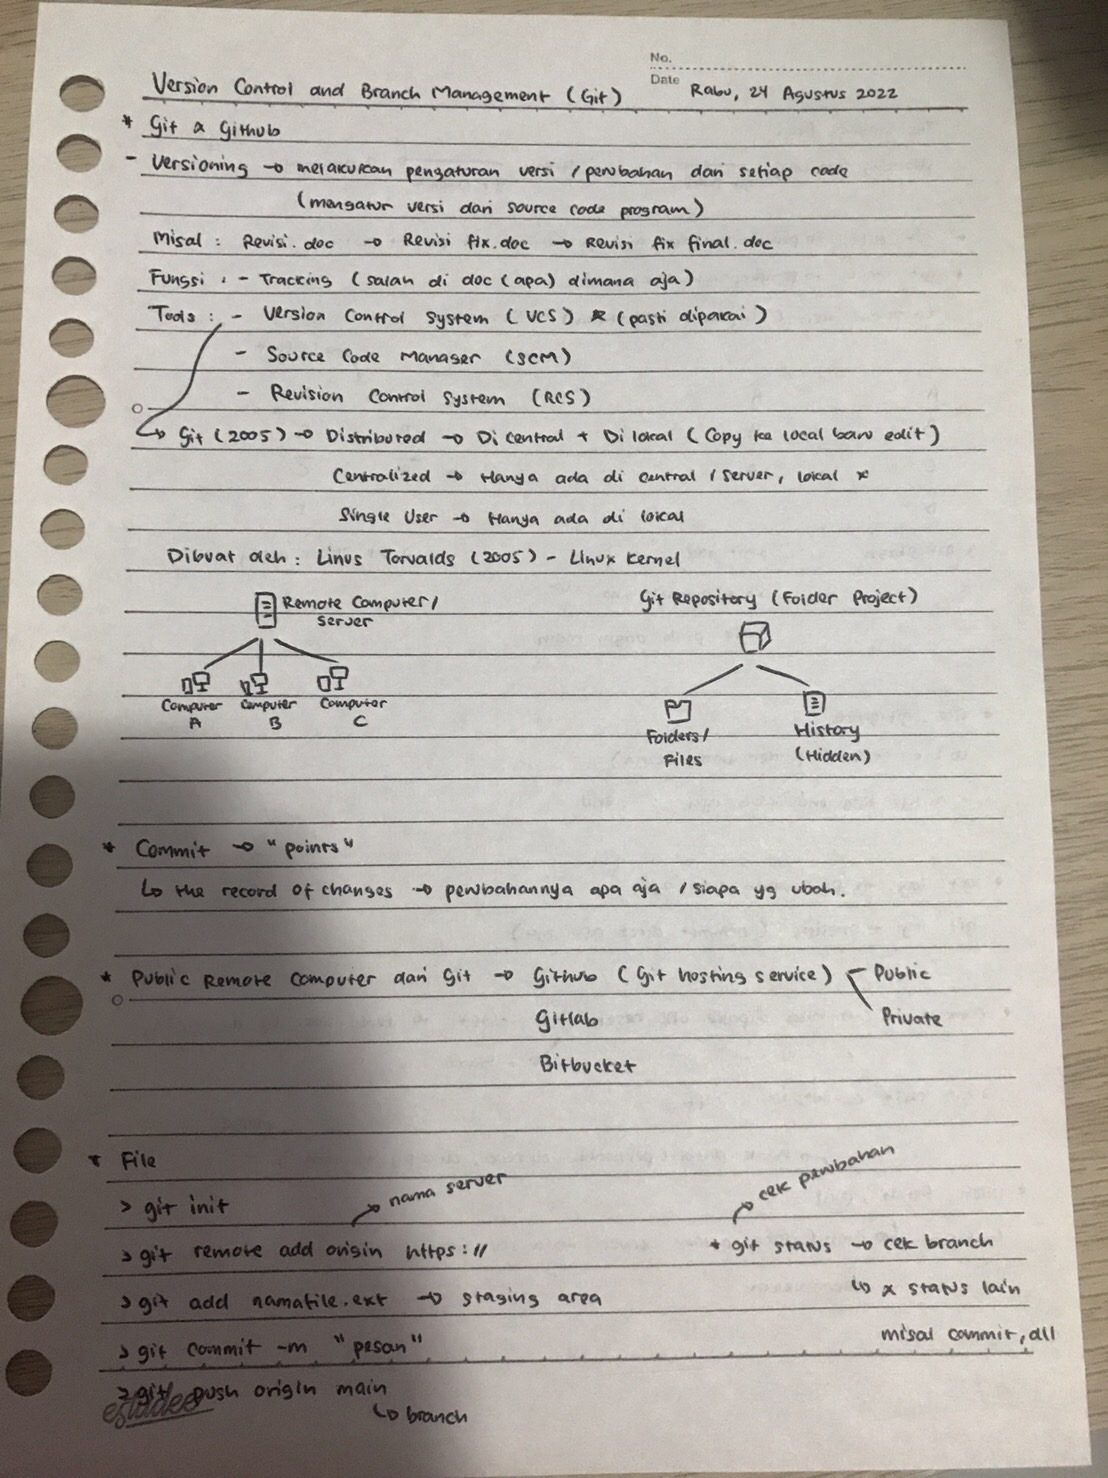 No.
Date Rabu, 24 Agustus 2022
Version Control and Branch Management (Git)
* Git & Github
- Versioning → melakukan pengaturan versi / perubahan dari setiap code
(mengatur versi dari source code program)
Misal : Revisi.doc → Revisi fix.doc → Revisi fix final.doc
Fungsi : - Tracking (salah di doc (apa) dimana aja)
Tools : - Version Control System (VCS) * (pasti dipakai)
- Source Code Manager (SCM)
- Revision Control System (RCS)
↳ Git (2005) → Distributed → Di central + Di lokal (Copy ke local baru edit)
Centralized → Hanya ada di central / server, lokal x
Single User → Hanya ada di lokal
Dibuat oleh : Linus Torvalds (2005) - Linux Kernel
Remote Computer/
Server
Computer A
Computer B
Computer C
Git Repository (Folder Project)
Folders/
Files
History
(Hidden)
* Commit → "points"
↳ the record of changes → perubahannya apa aja / siapa yg ubah.
* Public Remote Computer dari Git → Github (Git hosting service)
Public
Private
Gitlab
Bitbucket
* File
> git init
nama server
> git remote add origin https://
> git add namafile.ext → staging area
> git commit -m "pesan"
> git push origin main
↳ branch
cek perubahan
* git status → cek branch
↳ x status lain
misal commit, dll